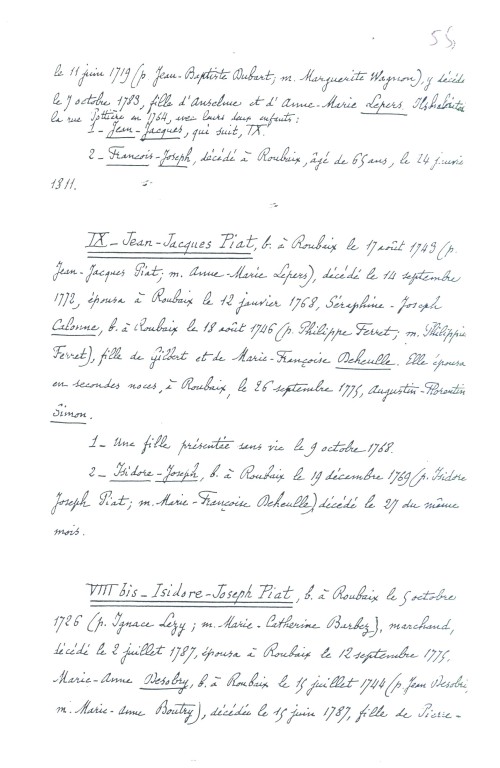 55
le 11 juin 1719 (p. Jean-Baptiste Dubart; m. Marguerite Wagnon), y décéda
le 7 octobre 1783, fille d'Anselme et d'Anne-Marie Lepers. Ils habitaient
la rue Pottière en 1764, avec leurs deux enfants:
1 - Jean-Jacques, qui suit, IX.
2 - François-Joseph, décédé à Roubaix, âgé de 65 ans, le 24 janvier
1811.
IX - Jean-Jacques Piat, b. à Roubaix le 17 août 1743 (p.
Jean-Jacques Piat; m. Anne-Marie Lepers), décédé le 14 septembre
1772, épousa à Roubaix le 12 janvier 1768, Séraphine-Joseph
Calonne, b. à Roubaix le 18 août 1746 (p. Philippe Ferret; m. Philippe
Ferret), fille de Gilbert et de Marie-Françoise Deheulle. Elle épousa
en secondes noces, à Roubaix, le 26 septembre 1775, Augustin-Florentin
Simon.
1 - Une fille présentée sans vie le 9 octobre 1768.
2 - Isidore-Joseph, b. à Roubaix le 19 décembre 1769 (p. Isidore
Joseph Piat; m. Marie-Françoise Deheulle) décédé le 27 du même
mois.
VIII bis - Isidore-Joseph Piat, b. à Roubaix le 5 octobre
1726 (p. Ignace Lezy; m. Marie-Catherine Barbez), marchand,
décédé le 2 juillet 1787, épousa à Roubaix le 12 septembre 1775,
Marie-Anne Desobry, b. à Roubaix le 15 juillet 1744 (p. Jean Desobri
m. Marie-Anne Boutry), décédée le 15 juin 1787, fille de Pierre-